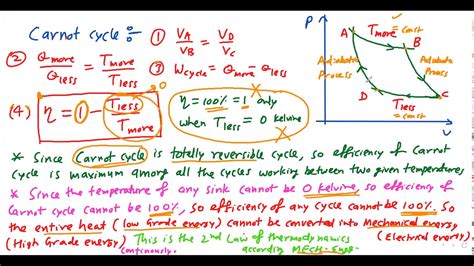 Carnot cycle :-
① V_A/V_B = V_D/V_C
② Q_more/Q_less = T_more/T_less
③ W_cycle = Q_more - Q_less
(4) η = 1 - T_less/T_more
0
η = 100% = 1 only
when T_less = 0 kelvine
P
A
T_more = const
B
Adiabatic
Process
Adiabatic
Process
D
T_less
= const
C
V
* Since Carnot cycle is totally reversible cycle, so efficiency of Carnot
cycle is maximum among all the cycles working between two given temperatures
* Since the temperature of any sink cannot be 0 kelvine, so efficiency of
Carnot cycle cannot be 100%, so efficiency of any cycle cannot be 100%. So
the entire heat (low Grade energy) cannot be converted into Mechanical energy
(High Grade energy) This is the 2nd Law of thermodynamics (Electrical energy).
continuously. according MECH-Engg.